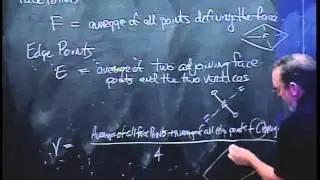 F = average of all points defining the face
Edge Points
E = average of two adjoining face
points and the two vertices
F
E
F
V = Average of all face Points + Average of all edge points +
4